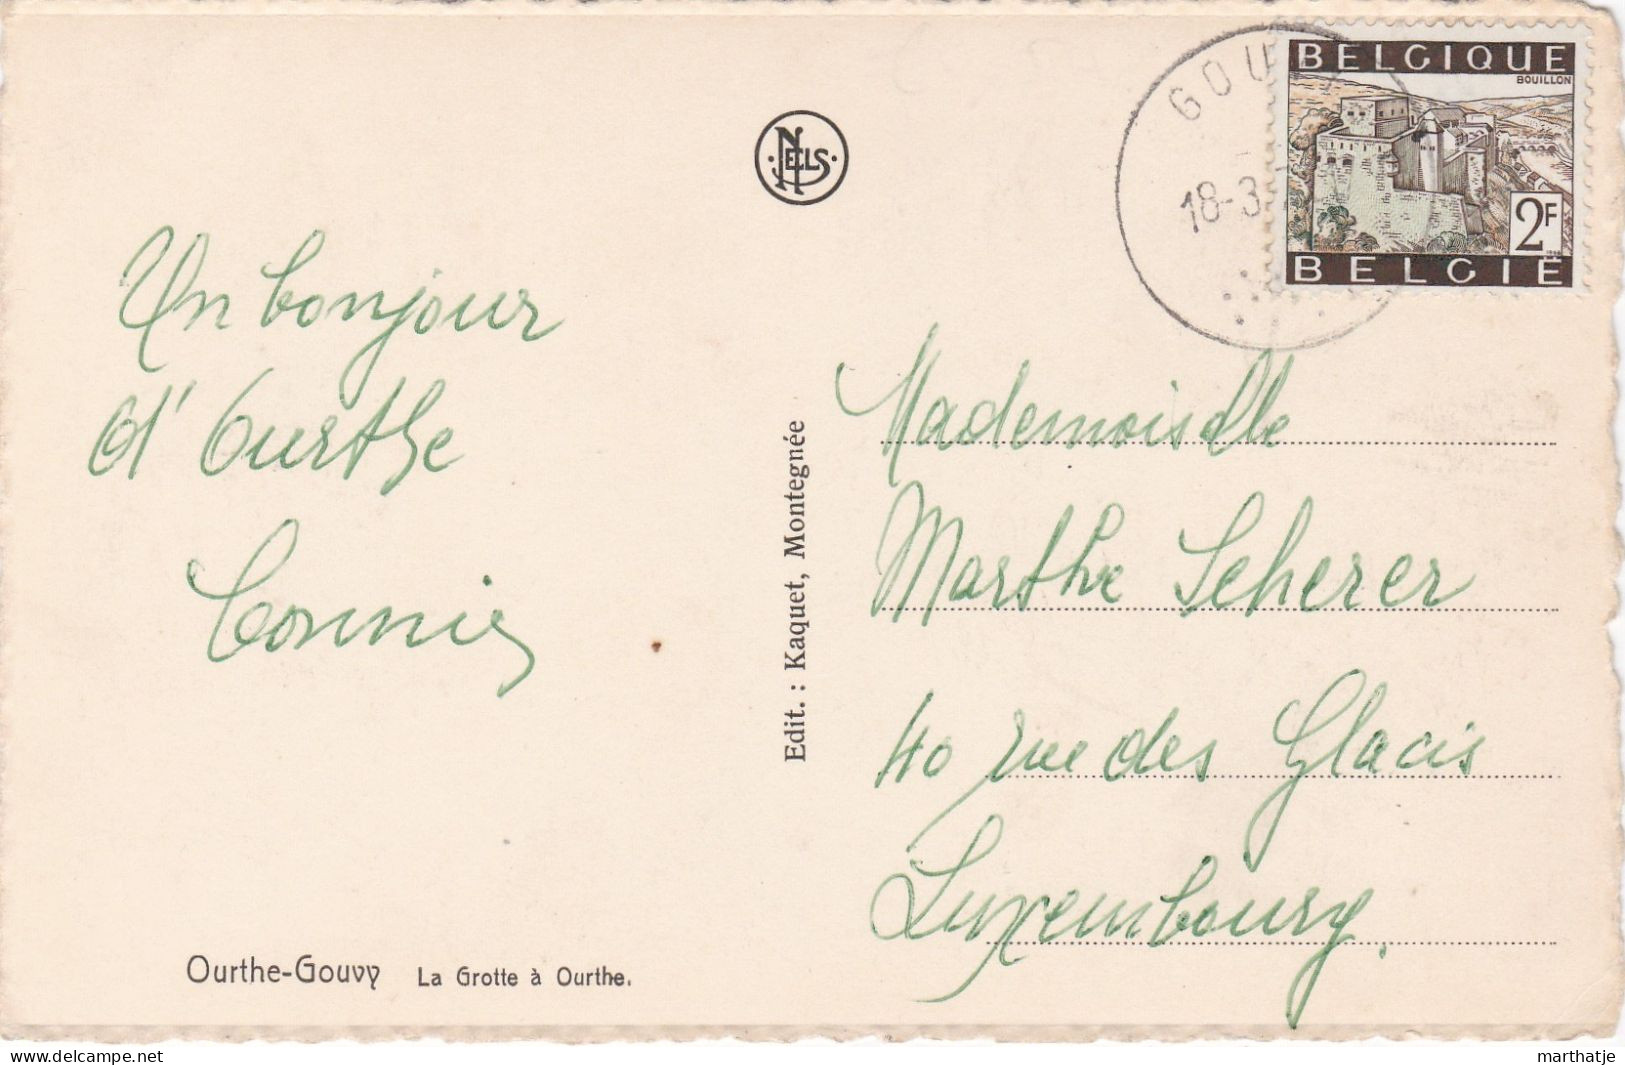 BELGIQUE
BOUILLON
2F
BELGIË
GOU
18-3
NELS
Un bonjour
d'Ourthe
Connie
Edit. : Kaquet, Montegnée
Mademoiselle
Marthe Scherer
40 rue des Glacis
Luxembourg.
Ourthe-Gouvy La Grotte à Ourthe.
www.delcampe.net
marthatje